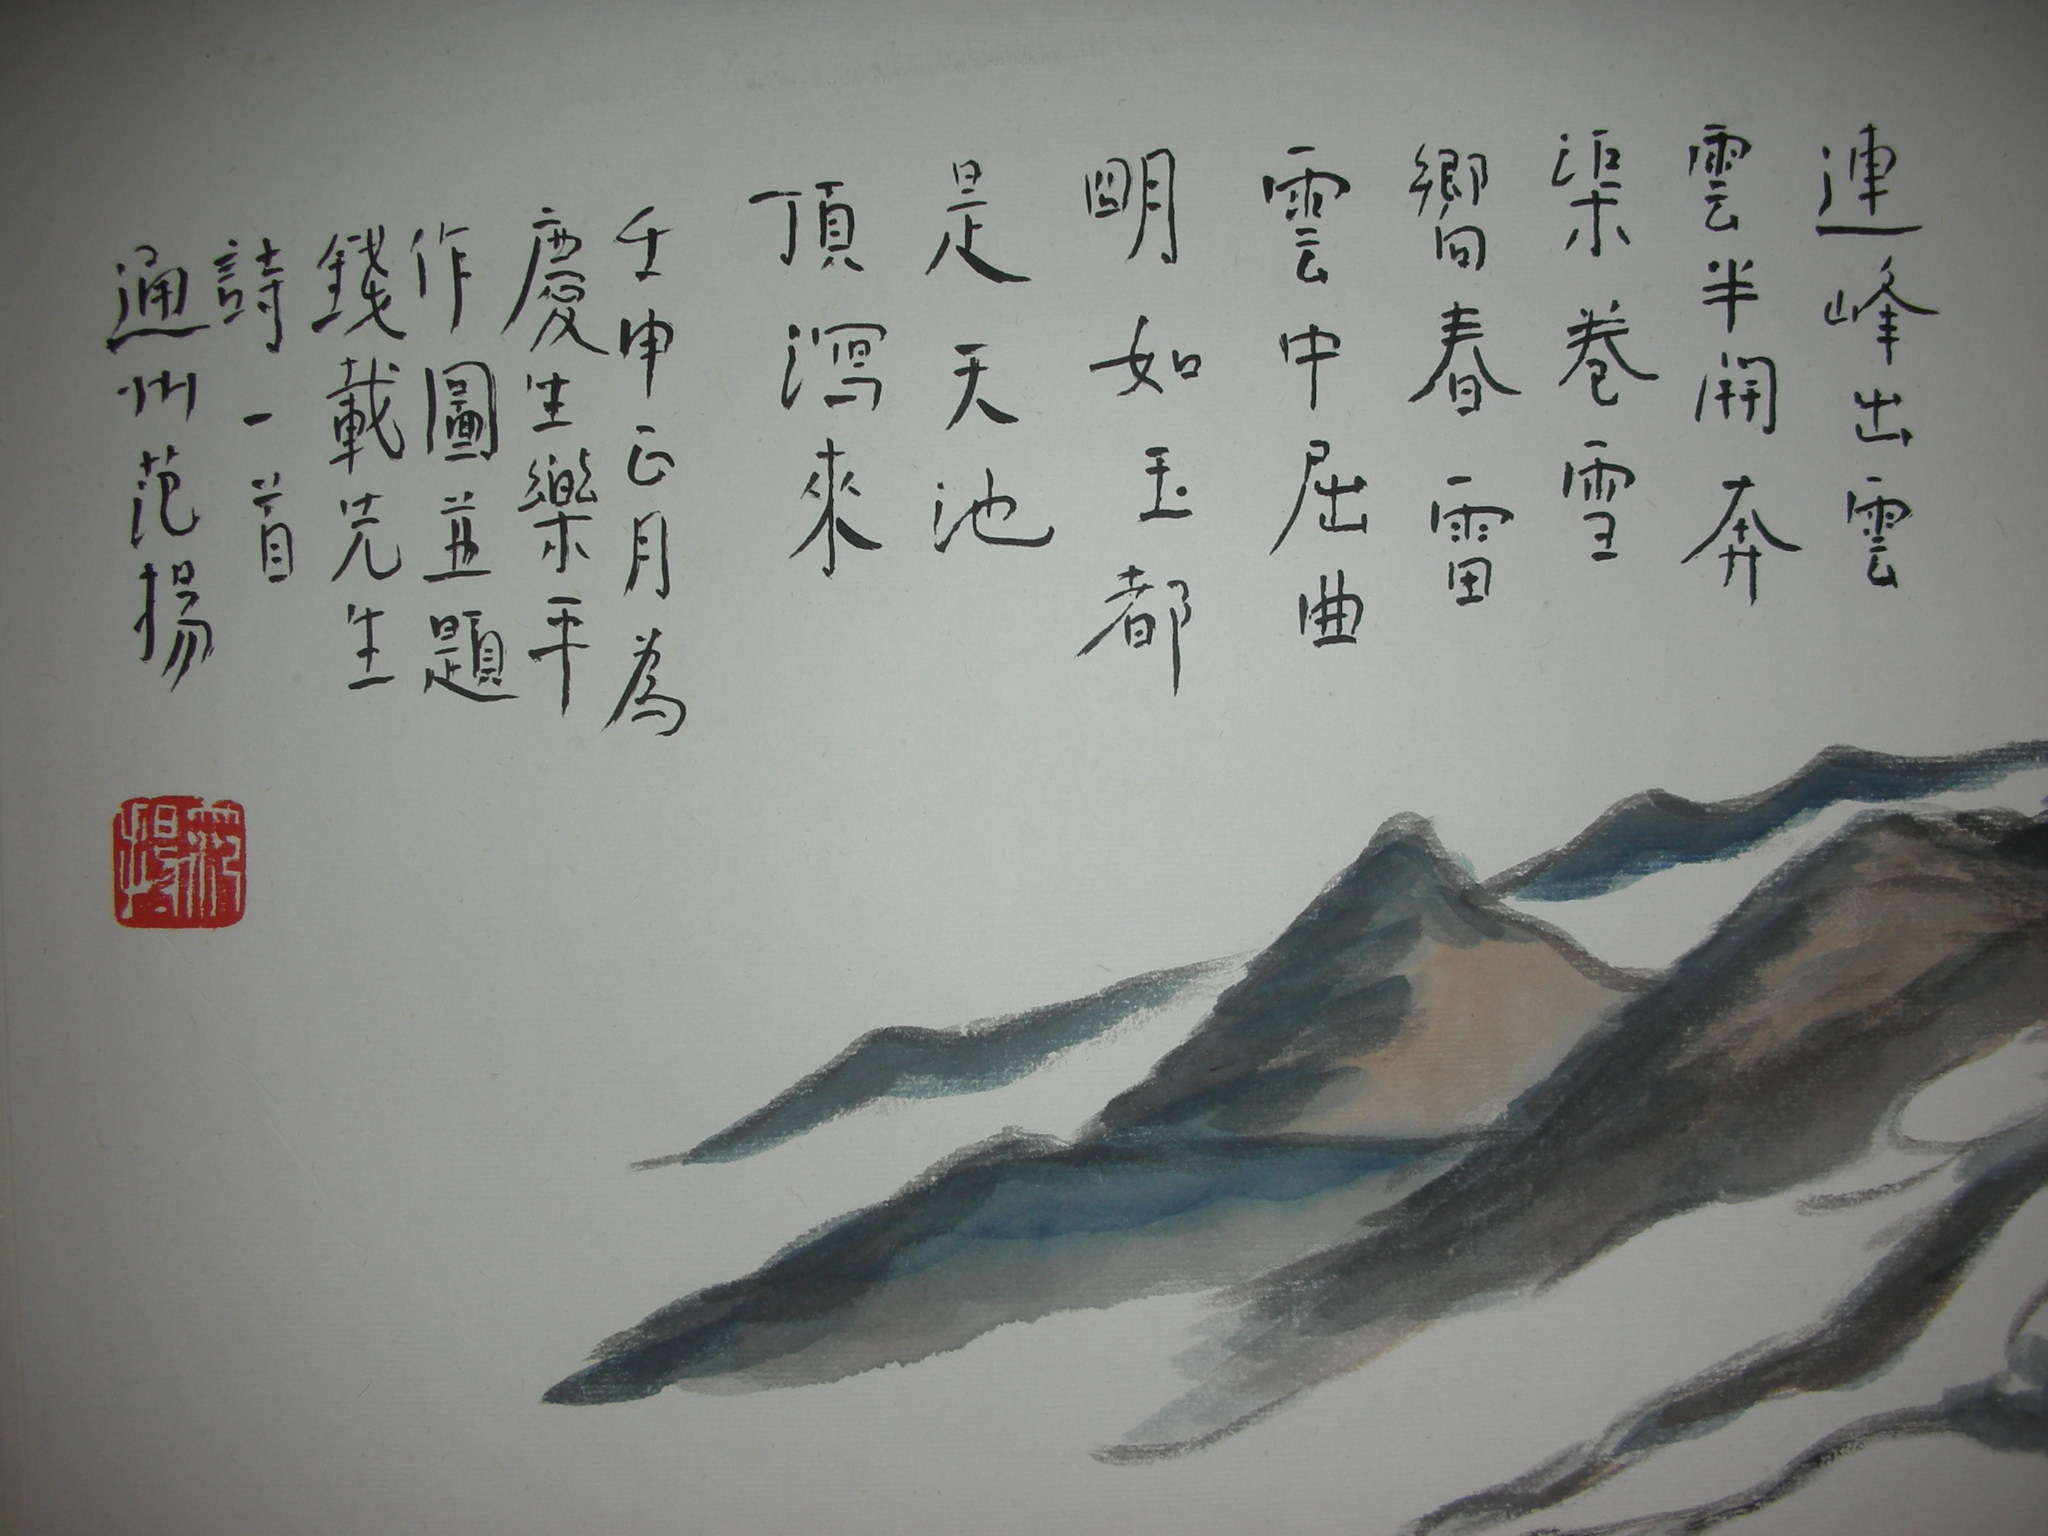 連峰出雲
雲半開奔
渠卷雪
響春雷
雲中屈曲
明如玉都
是天池
頂瀉來
壬申正月為
慶生樂平
作圖並題
錢載先生
詩一首
通州范揚
范揚